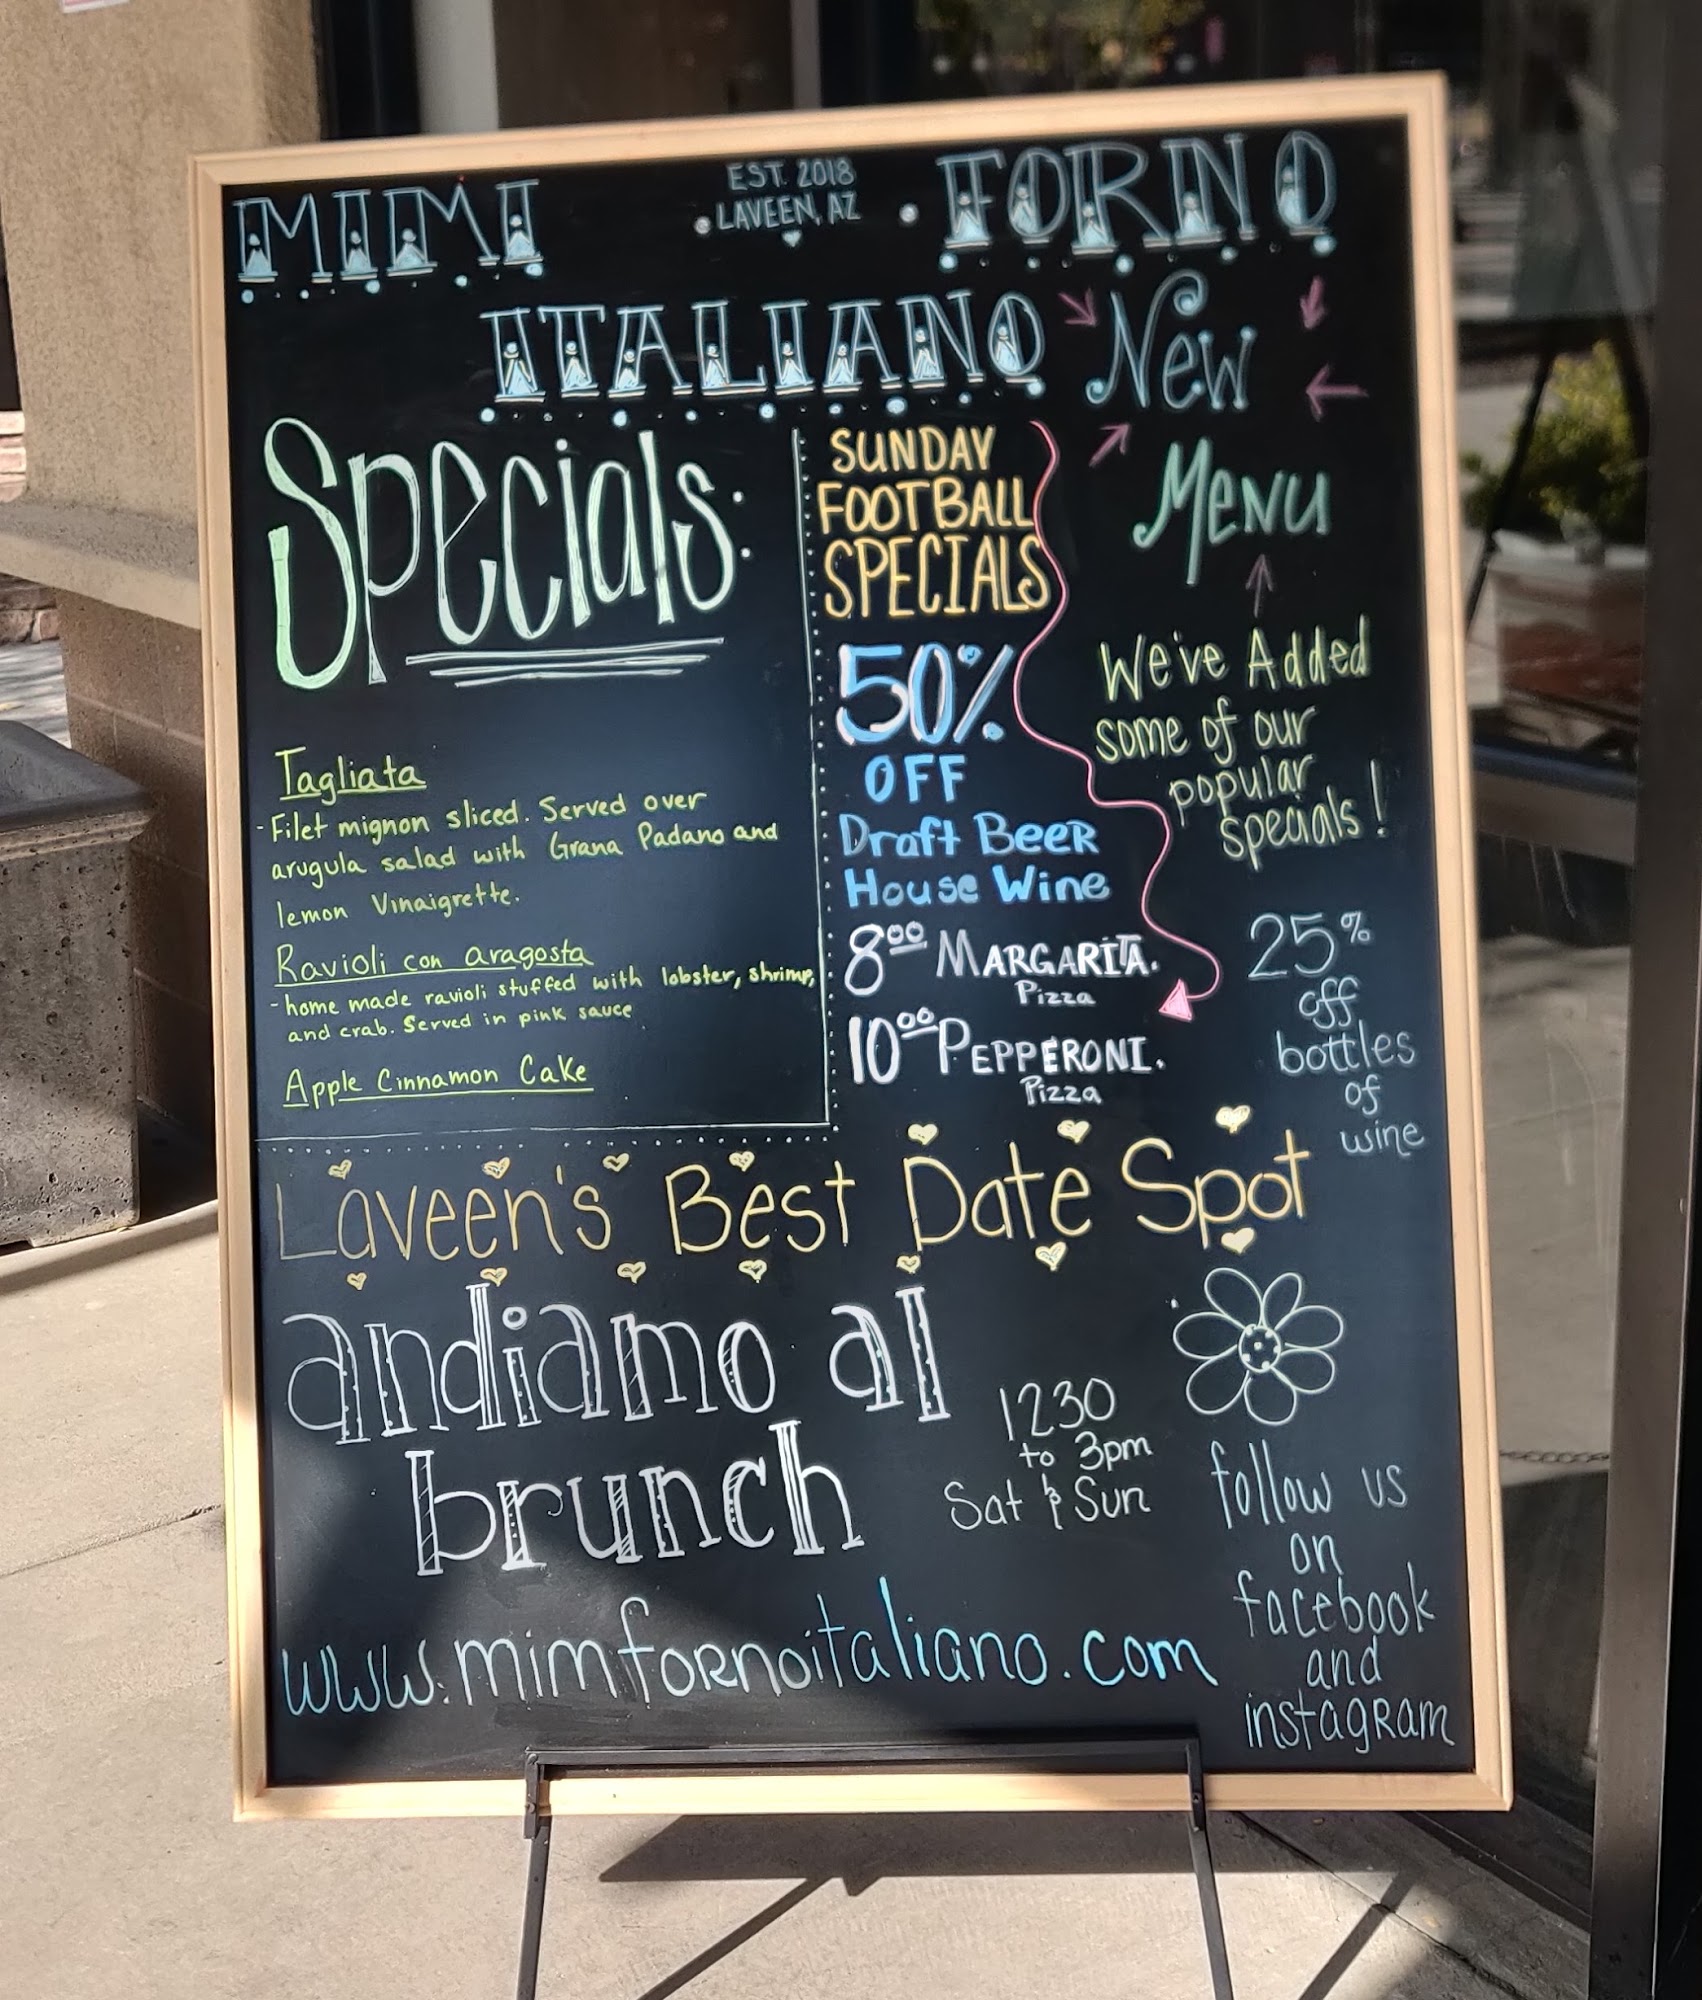 MIMI
EST. 2018
LAVEEN, AZ
FORNO
ITALIANO
Specials:
Tagliata
- Filet mignon sliced. Served over
arugula salad with Grana Padano and
lemon Vinaigrette.
Ravioli con aragosta
- home made ravioli stuffed with lobster, shrimp,
and crab. Served in pink sauce
Apple Cinnamon Cake
SUNDAY
FOOTBALL
SPECIALS
50%
OFF
Draft Beer
House Wine
8⁰⁰ MARGARITA.
Pizza
10⁰⁰ PEPPERONI.
Pizza
New
Menu
We've Added
some of our
popular
specials!
25%
off
bottles
of
wine
Laveen's Best Date Spot
andiamo al
brunch
1230
to 3pm
Sat & Sun
follow us
on
facebook
and
instagram
www.mimfornoitaliano.com